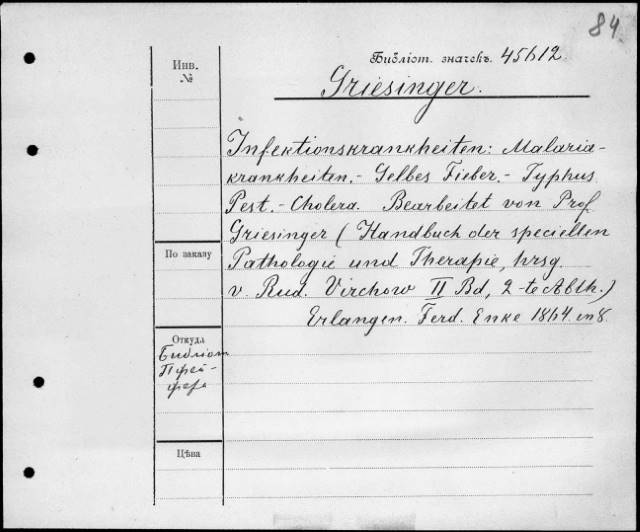 84.
Инв.
№
Библіот. значекъ. 45612
Griesinger.
Infektionskrankheiten: Malaria-
krankheiten.- Gelbes Fieber.- Typhus
Pest.- Cholera. Bearbeitet von Prof
Griesinger (Handbuch der speciellen
По заказу
Pathologie und Therapie, hrsg.
v. Rud. Virchow II Bd, 2-te Abth.)
Erlangen. Ferd. Enke 1864. in 8.
Откуда
Библіот
Пфей-
фера
Цѣна